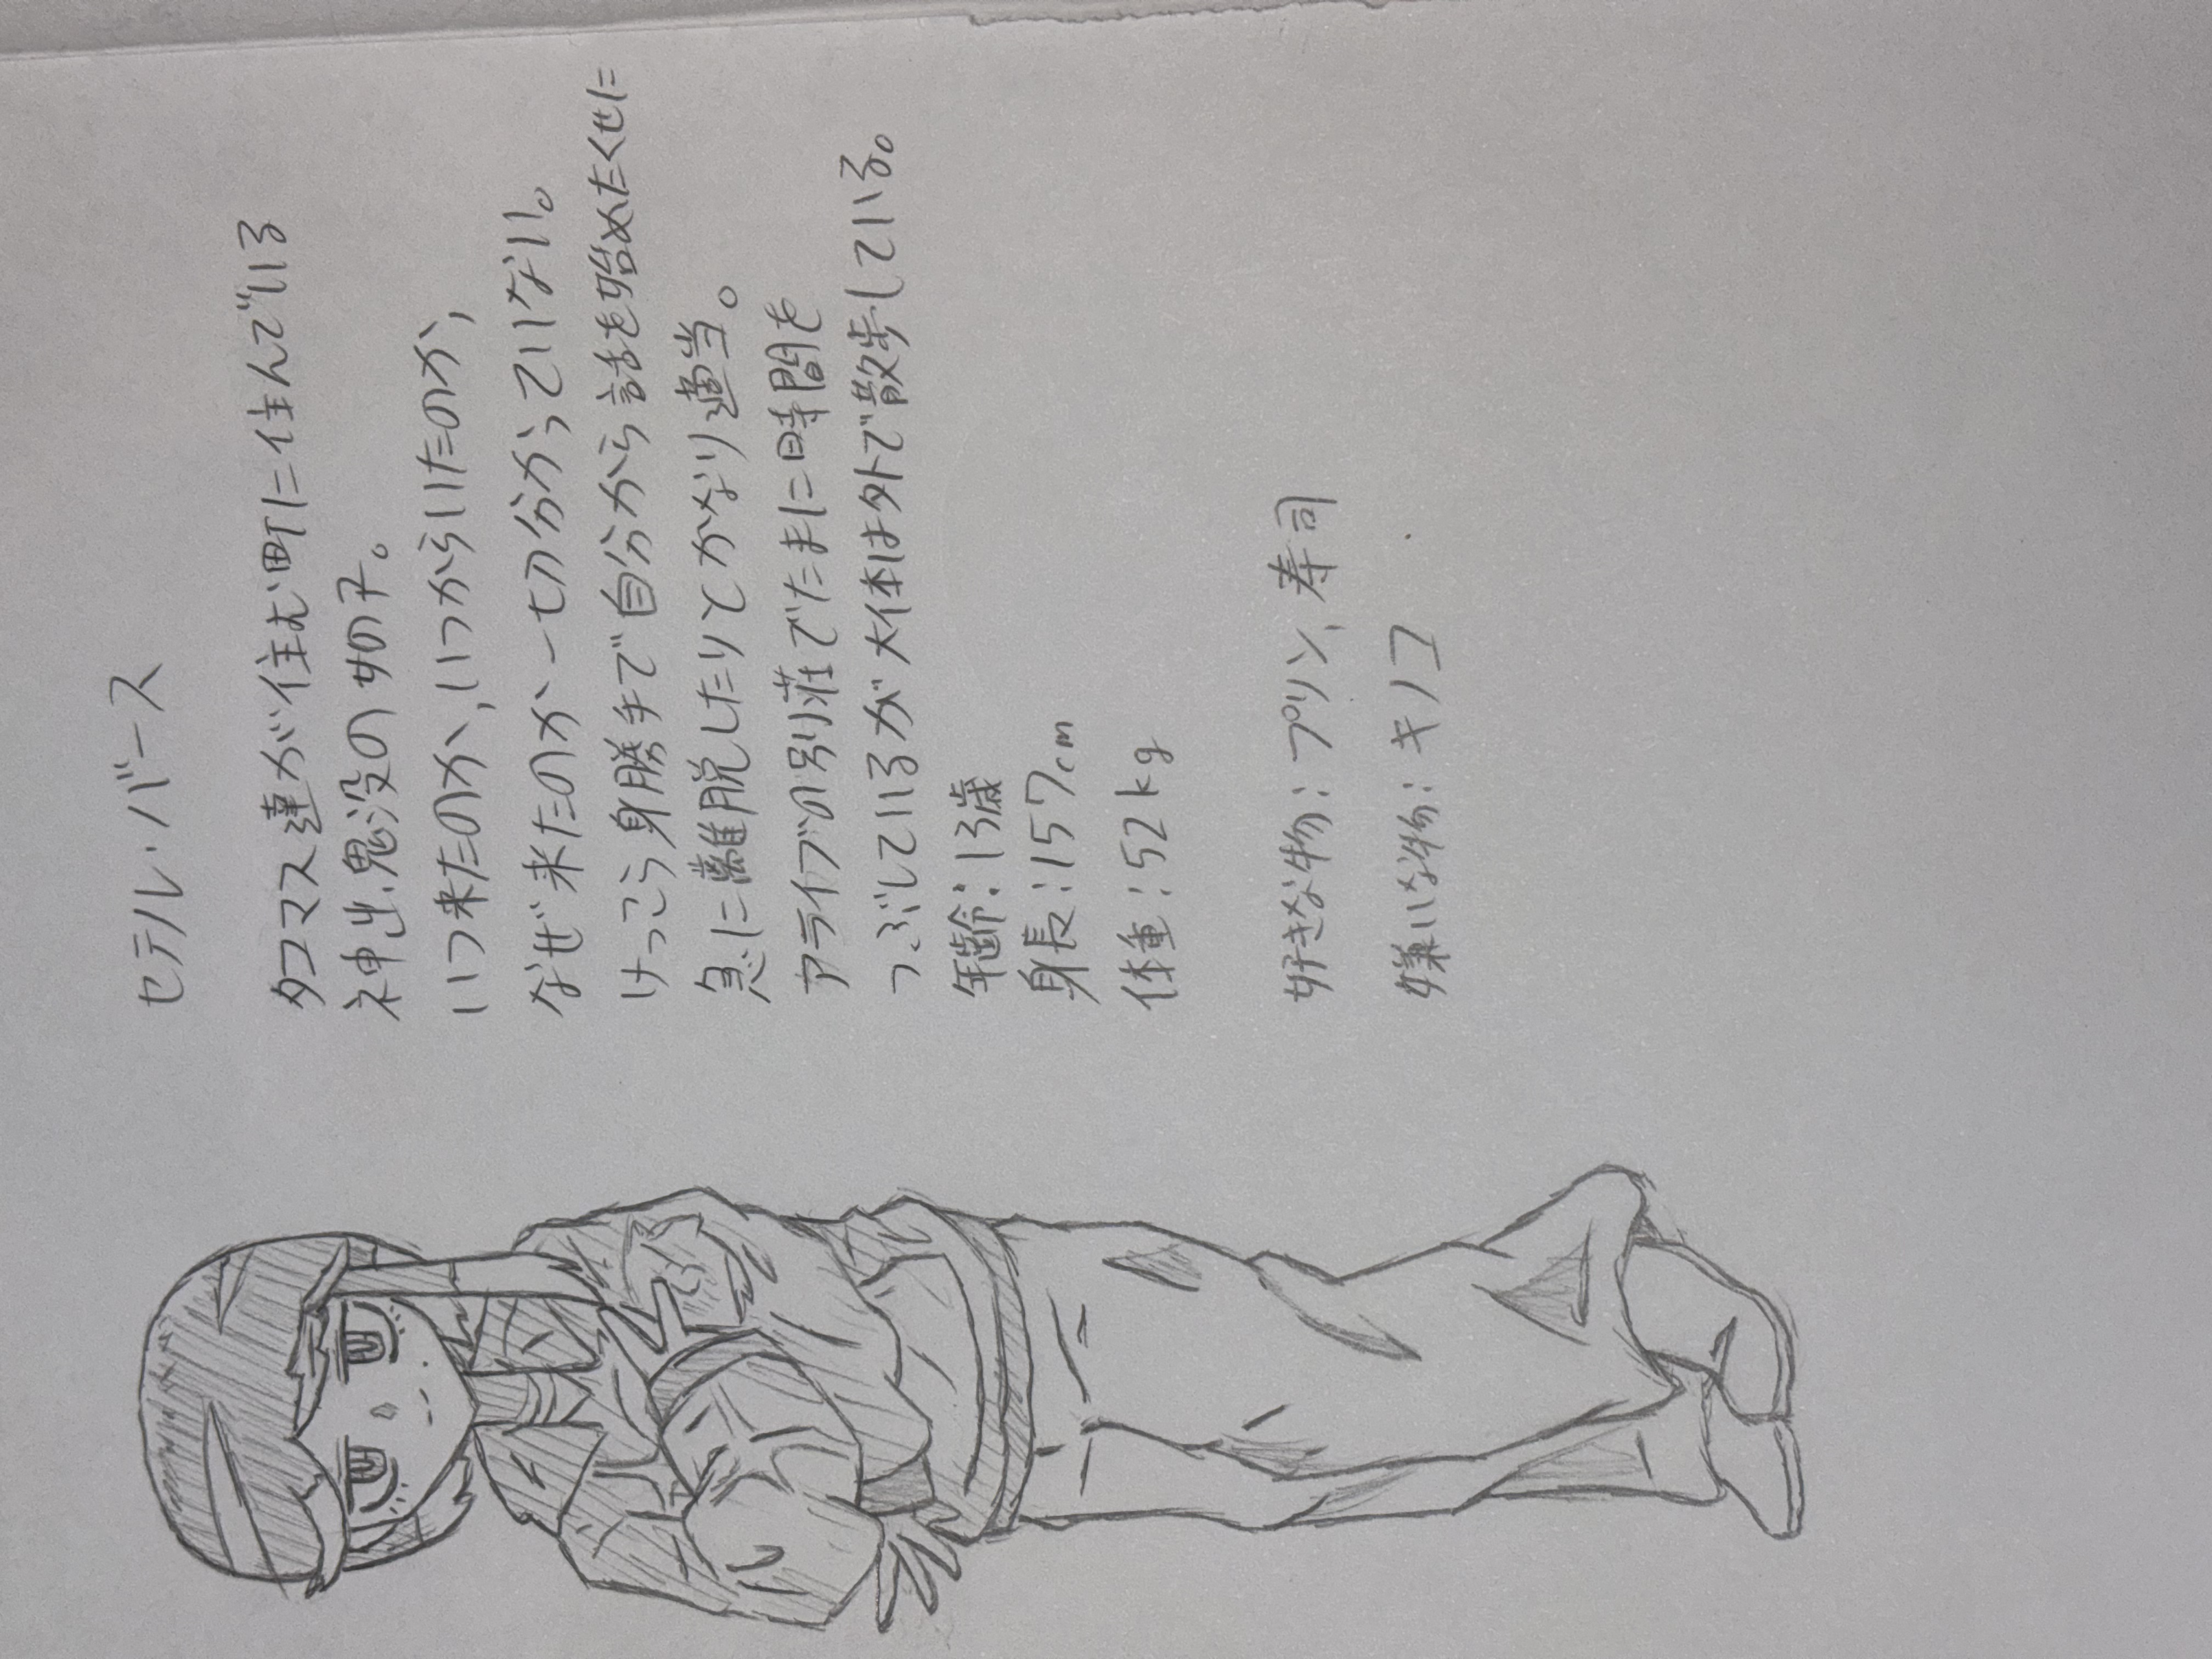 セテル・バース
タコマス達が住む町に住んでいる
神出鬼没の女の子。
いつ来たのか、いつからいたのか、
なぜ来たのか一切分かっていない。
けっこう身勝手で自分から話を始めたくせに
急に離脱したりとかなり適当。
アライブの別荘でたまに時間を
つぶしているが大体は外で散歩している。
年齢:13歳
身長:157cm
体重:52kg
好きな物:プリン、寿司
嫌いな物:キノコ